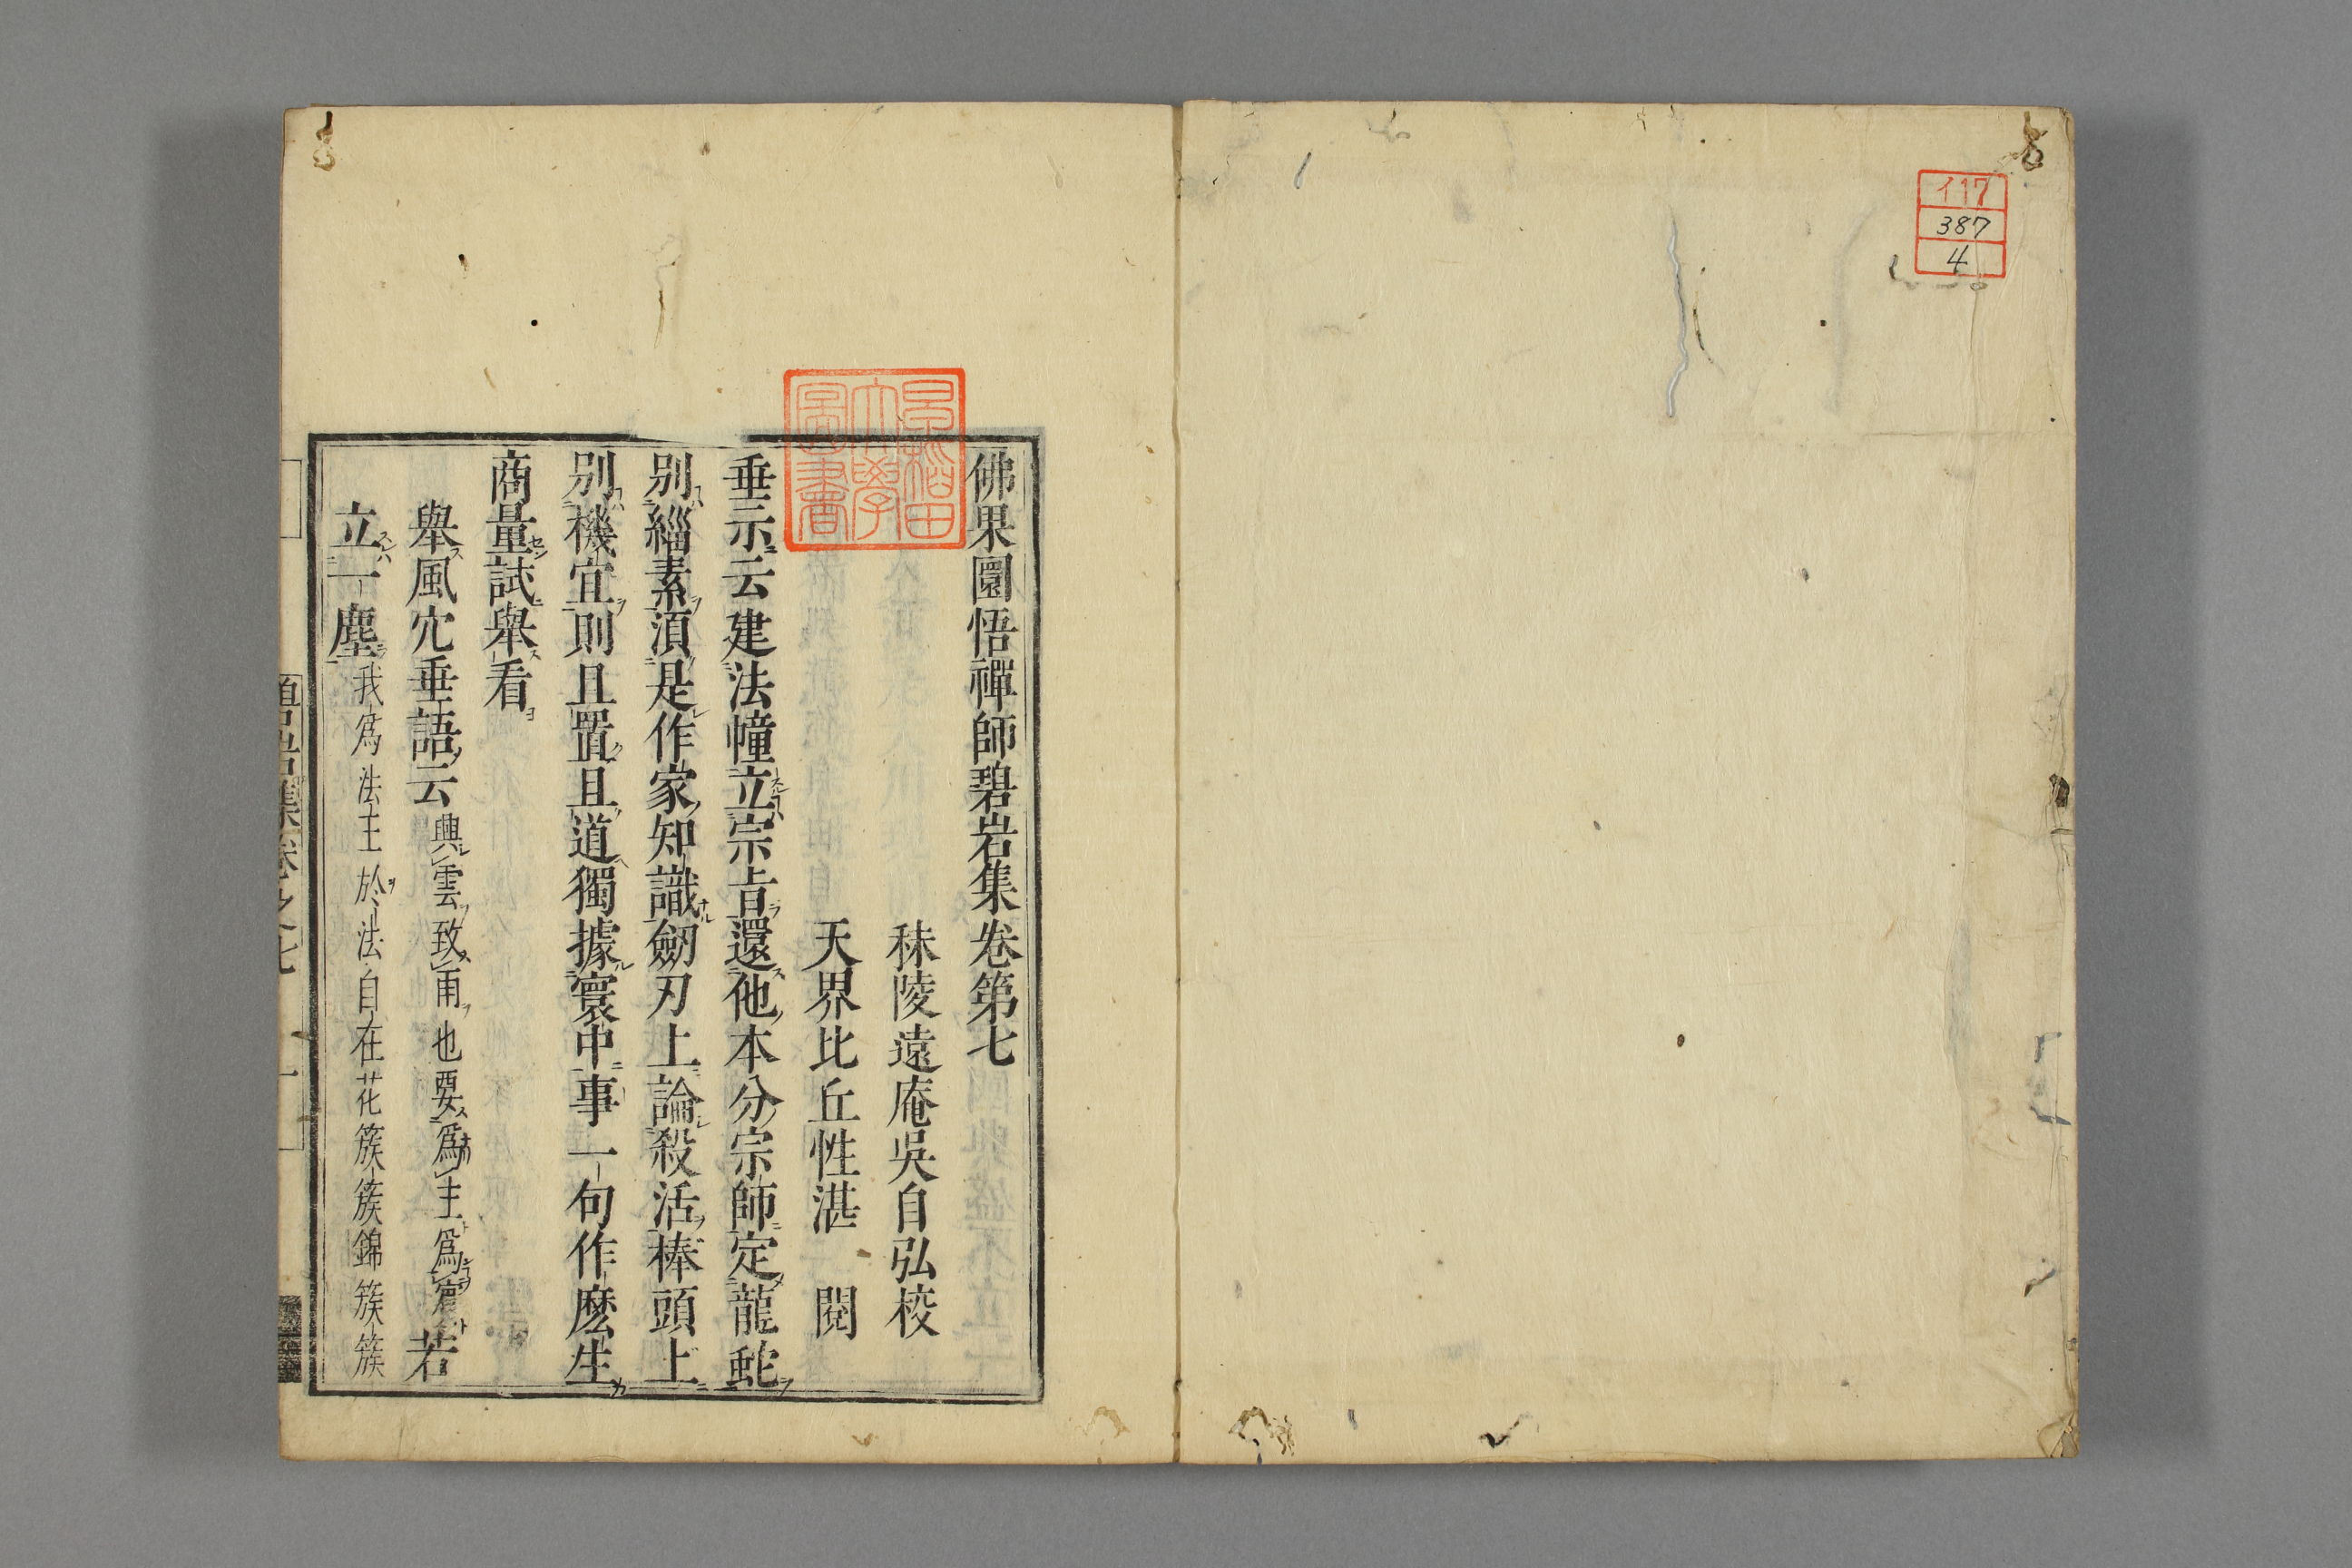 イ17
387
4
早稲田
大學
圖書
佛果圜悟禪師碧岩集卷第七
秣陵遠庵吳自弘校
天界比丘性湛 閱
垂示云建法幢立宗旨還他本分宗師定龍蛇
別緇素須是作家知識劒刃上論殺活棒頭上
別機宜則且置且道獨據寰中事一句作麽生
商量試舉看
舉風穴垂語云興雲致雨也要為主為賓若
立一塵我為法王於法自在花簇簇錦簇簇
碧岩集卷之七 一